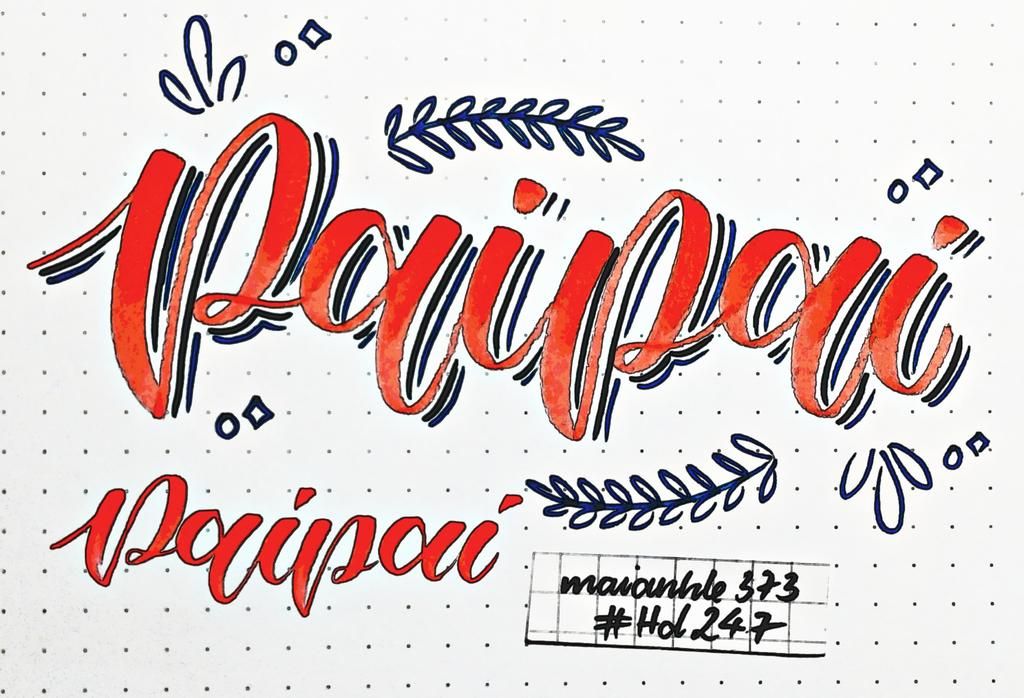 Paipai
Paipai
maranhle 373
#Hd 247